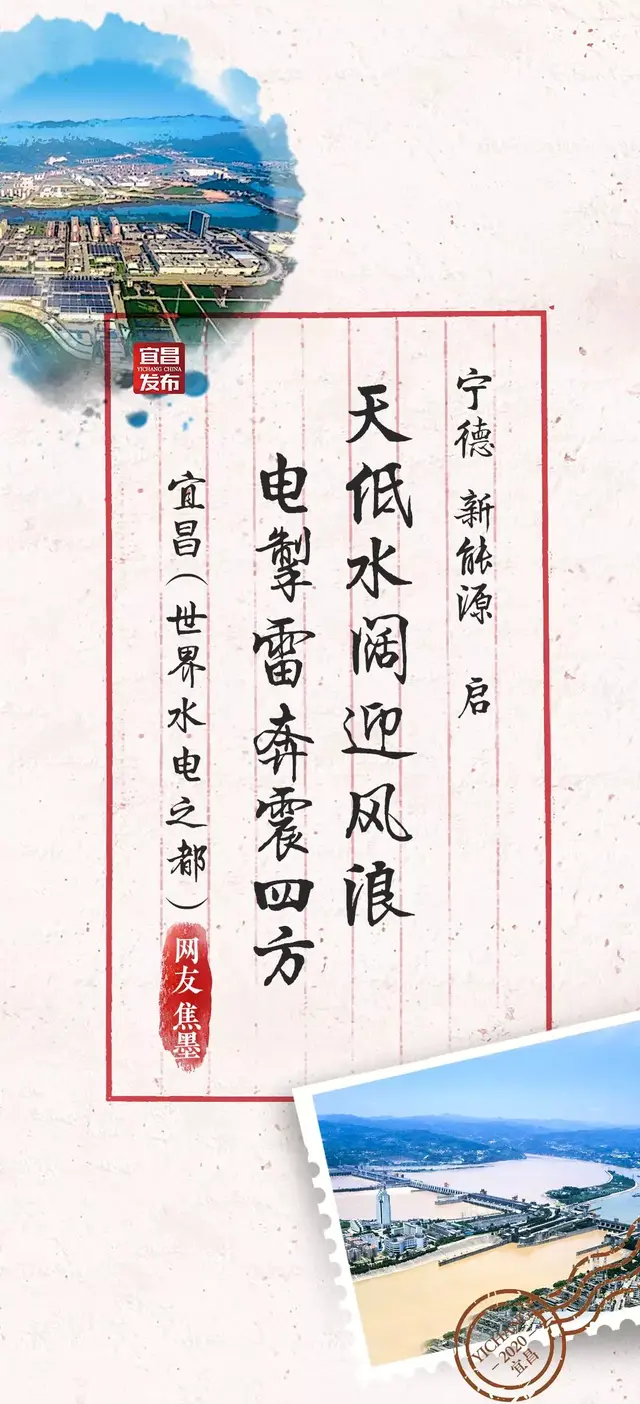 宜昌
YICHANG CHINA
发布
宁德 新能源 启
天低水阔迎风浪
电掣雷奔震四方
宜昌（世界水电之都）
网友 焦墨
YICHANG
2020
宜昌